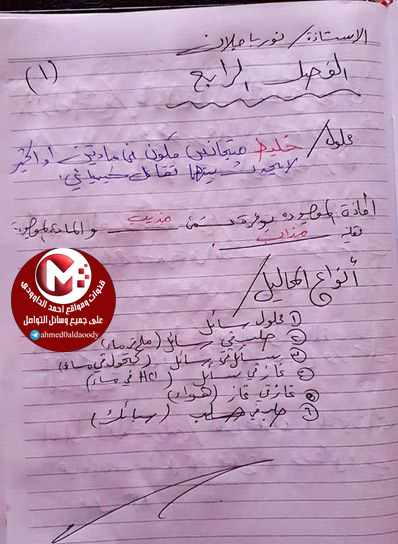 الاستاذة / نور باجلان
(١)
الفصل الرابع
محلول / خليط متجانس مكون من مادتين او اكثر
لا يحدث بينها تفاعل كيميائي.
المادة الموجودة بوفرة تسمى مذيب والمادة الموجودة
بقلة مذاب.
أنواع المحاليل /
① محلول سائل
② صلب في سائل (ملح في ماء)
③ سائل في سائل (كحول في ماء)
④ غاز في سائل (HCl في ماء)
⑤ غاز في غاز (هواء)
⑥ صلب في صلب (سبائك)
M
قنوات ومواقع احمد الداوودي
على جميع وسائل التواصل
@ahmed0aldaoody